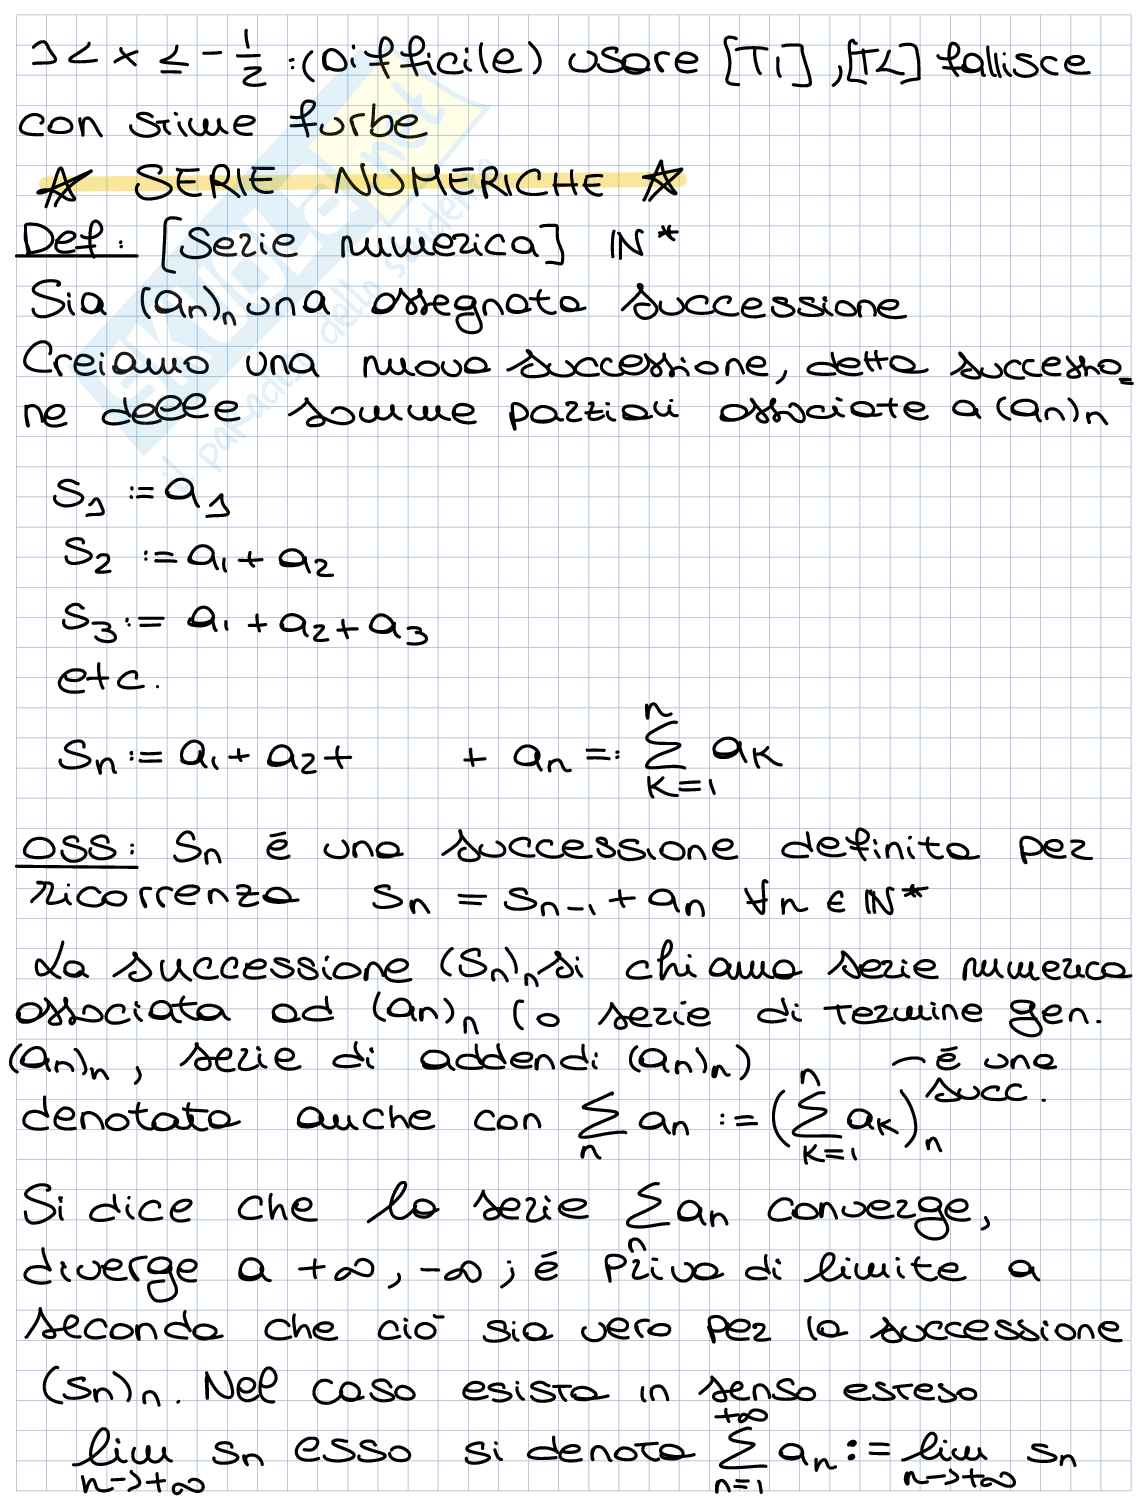 1 < x ≤ -1/2 :(Difficile) usare [T1], [T2] fallisce
con stime furbe
☆ SERIE NUMERICHE ☆
Def: [Serie numerica] ℕ*
Sia (an)n una assegnata successione
Creiamo una nuova successione, detta successio-
ne delle somme parziali associate a (an)n
S1 := a1
S2 := a1 + a2
S3 := a1 + a2 + a3
etc.
Sn := a1 + a2 + + an =: ∑_{k=1}^{n} ak
OSS: Sn é una successione definita per
ricorrenza Sn = Sn-1 + an ∀n ∈ ℕ*
La successione (Sn)n si chiama serie numerica
associata ad (an)n (o serie di termine gen.
(an)n, serie di addendi (an)n) – é una
succ.
denotata anche con ∑_{n} an := (∑_{k=1}^{n} ak)n
Si dice che la serie ∑_{n} an converge,
diverge a +∞, -∞; é priva di limite a
seconda che ció sia vero per la successione
(Sn)n. Nel caso esista in senso esteso
lim_{n->+∞} Sn esso si denota ∑_{n=1}^{+∞} an := lim_{n->+∞} Sn
SKUOLA.net
il paradiso dello studente